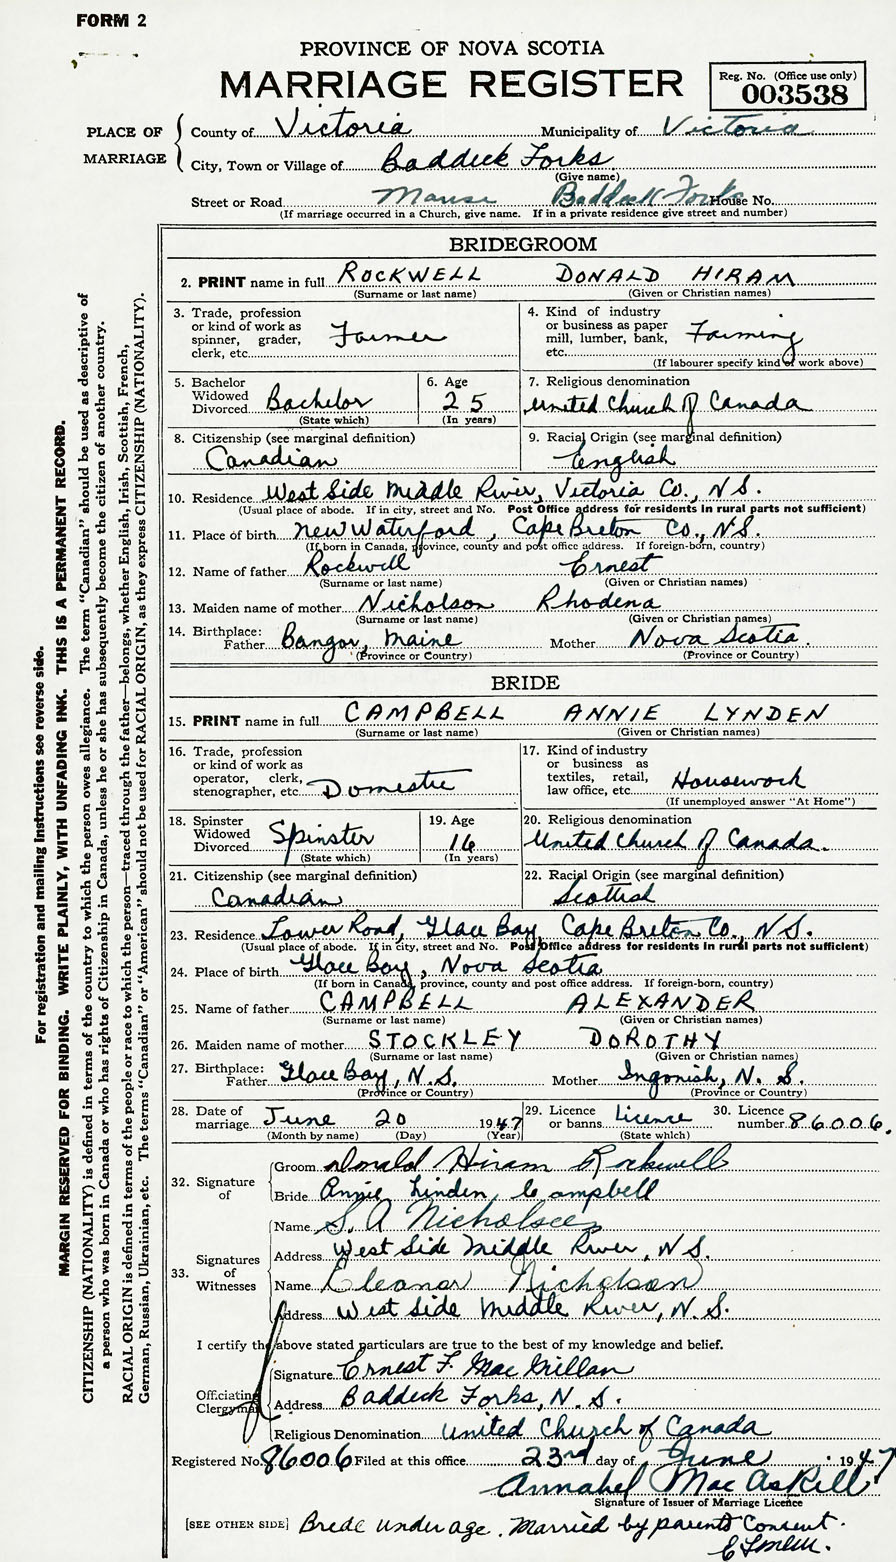 FORM 2
PROVINCE OF NOVA SCOTIA
MARRIAGE REGISTER
Reg. No. (Office use only)
003538
PLACE OF MARRIAGE
County of Victoria Municipality of Victoria
City, Town or Village of Baddeck Forks
(Give name)
Street or Road Manse Baddeck Forks House No.
(If marriage occurred in a Church, give name. If in a private residence give street and number)
BRIDEGROOM
2. PRINT name in full ROCKWELL DONALD HIRAM
(Surname or last name) (Given or Christian names)
3. Trade, profession or kind of work as spinner, grader, clerk, etc. Farmer
4. Kind of industry or business as paper mill, lumber, bank, etc. Farming
(If labourer specify kind of work above)
5. Bachelor Widowed Divorced Bachelor
(State which)
6. Age 25
(In years)
7. Religious denomination
United Church of Canada
8. Citizenship (see marginal definition)
Canadian
9. Racial Origin (see marginal definition)
English
10. Residence West Side Middle River, Victoria Co., N.S.
(Usual place of abode. If in city, street and No. Post Office address for residents in rural parts not sufficient)
11. Place of birth New Waterford, Cape Breton Co., N.S.
(If born in Canada, province, county and post office address. If foreign-born, country)
12. Name of father Rockwell Ernest
(Surname or last name) (Given or Christian names)
13. Maiden name of mother Nicholson Rhodena
(Surname or last name) (Given or Christian names)
14. Birthplace: Father Bangor, Maine Mother Nova Scotia.
(Province or Country) (Province or Country)
BRIDE
15. PRINT name in full CAMPBELL ANNIE LYNDEN
(Surname or last name) (Given or Christian names)
16. Trade, profession or kind of work as operator, clerk, stenographer, etc. Domestic
17. Kind of industry or business as textiles, retail, law office, etc. Housework
(If unemployed answer "At Home")
18. Spinster Widowed Divorced Spinster
(State which)
19. Age 16
(In years)
20. Religious denomination
United Church of Canada.
21. Citizenship (see marginal definition)
Canadian
22. Racial Origin (see marginal definition)
Scottish
23. Residence Lower Road, Glace Bay, Cape Breton Co., N.S.
(Usual place of abode. If in city, street and No. Post Office address for residents in rural parts not sufficient)
24. Place of birth Glace Bay, Nova Scotia
(If born in Canada, province, county and post office address. If foreign-born, country)
25. Name of father CAMPBELL ALEXANDER
(Surname or last name) (Given or Christian names)
26. Maiden name of mother STOCKLEY DOROTHY
(Surname or last name) (Given or Christian names)
27. Birthplace: Father Glace Bay, N.S. Mother Ingonish, N. S.
(Province or Country) (Province or Country)
28. Date of marriage June 20 1947
(Month by name) (Day) (Year)
29. Licence or banns Licence
(State which)
30. Licence number 86006.
32. Signature of
Groom Donald Hiram Rockwell
Bride Annie Linden Campbell
33. Signatures of Witnesses
Name S. A Nicholson
Address West Side Middle River, N.S.
Name Eleanor Nicholson
Address West Side Middle River, N.S.
I certify the above stated particulars are true to the best of my knowledge and belief.
Officiating Clergyman
Signature Ernest F. MacMillan
Address Baddeck Forks, N.S.
Religious Denomination United Church of Canada
Registered No. 86006 Filed at this office 23rd day of June 1947
Annabel MacAskill
Signature of Issuer of Marriage Licence
[SEE OTHER SIDE] Bride under age. Married by parents Consent.
For registration and mailing instructions see reverse side.
MARGIN RESERVED FOR BINDING. WRITE PLAINLY, WITH UNFADING INK. THIS IS A PERMANENT RECORD.
CITIZENSHIP (NATIONALITY) is defined in terms of the country to which the person owes allegiance. The term "Canadian" should be used as descriptive of
a person who was born in Canada or who has rights of Citizenship in Canada, unless he or she has subsequently become the citizen of another country.
RACIAL ORIGIN is defined in terms of the people or race to which the person—traced through the father—belongs, whether English, Irish, Scottish, French,
German, Russian, Ukrainian, etc. The terms "Canadian" or "American" should not be used for RACIAL ORIGIN, as they express CITIZENSHIP (NATIONALITY).